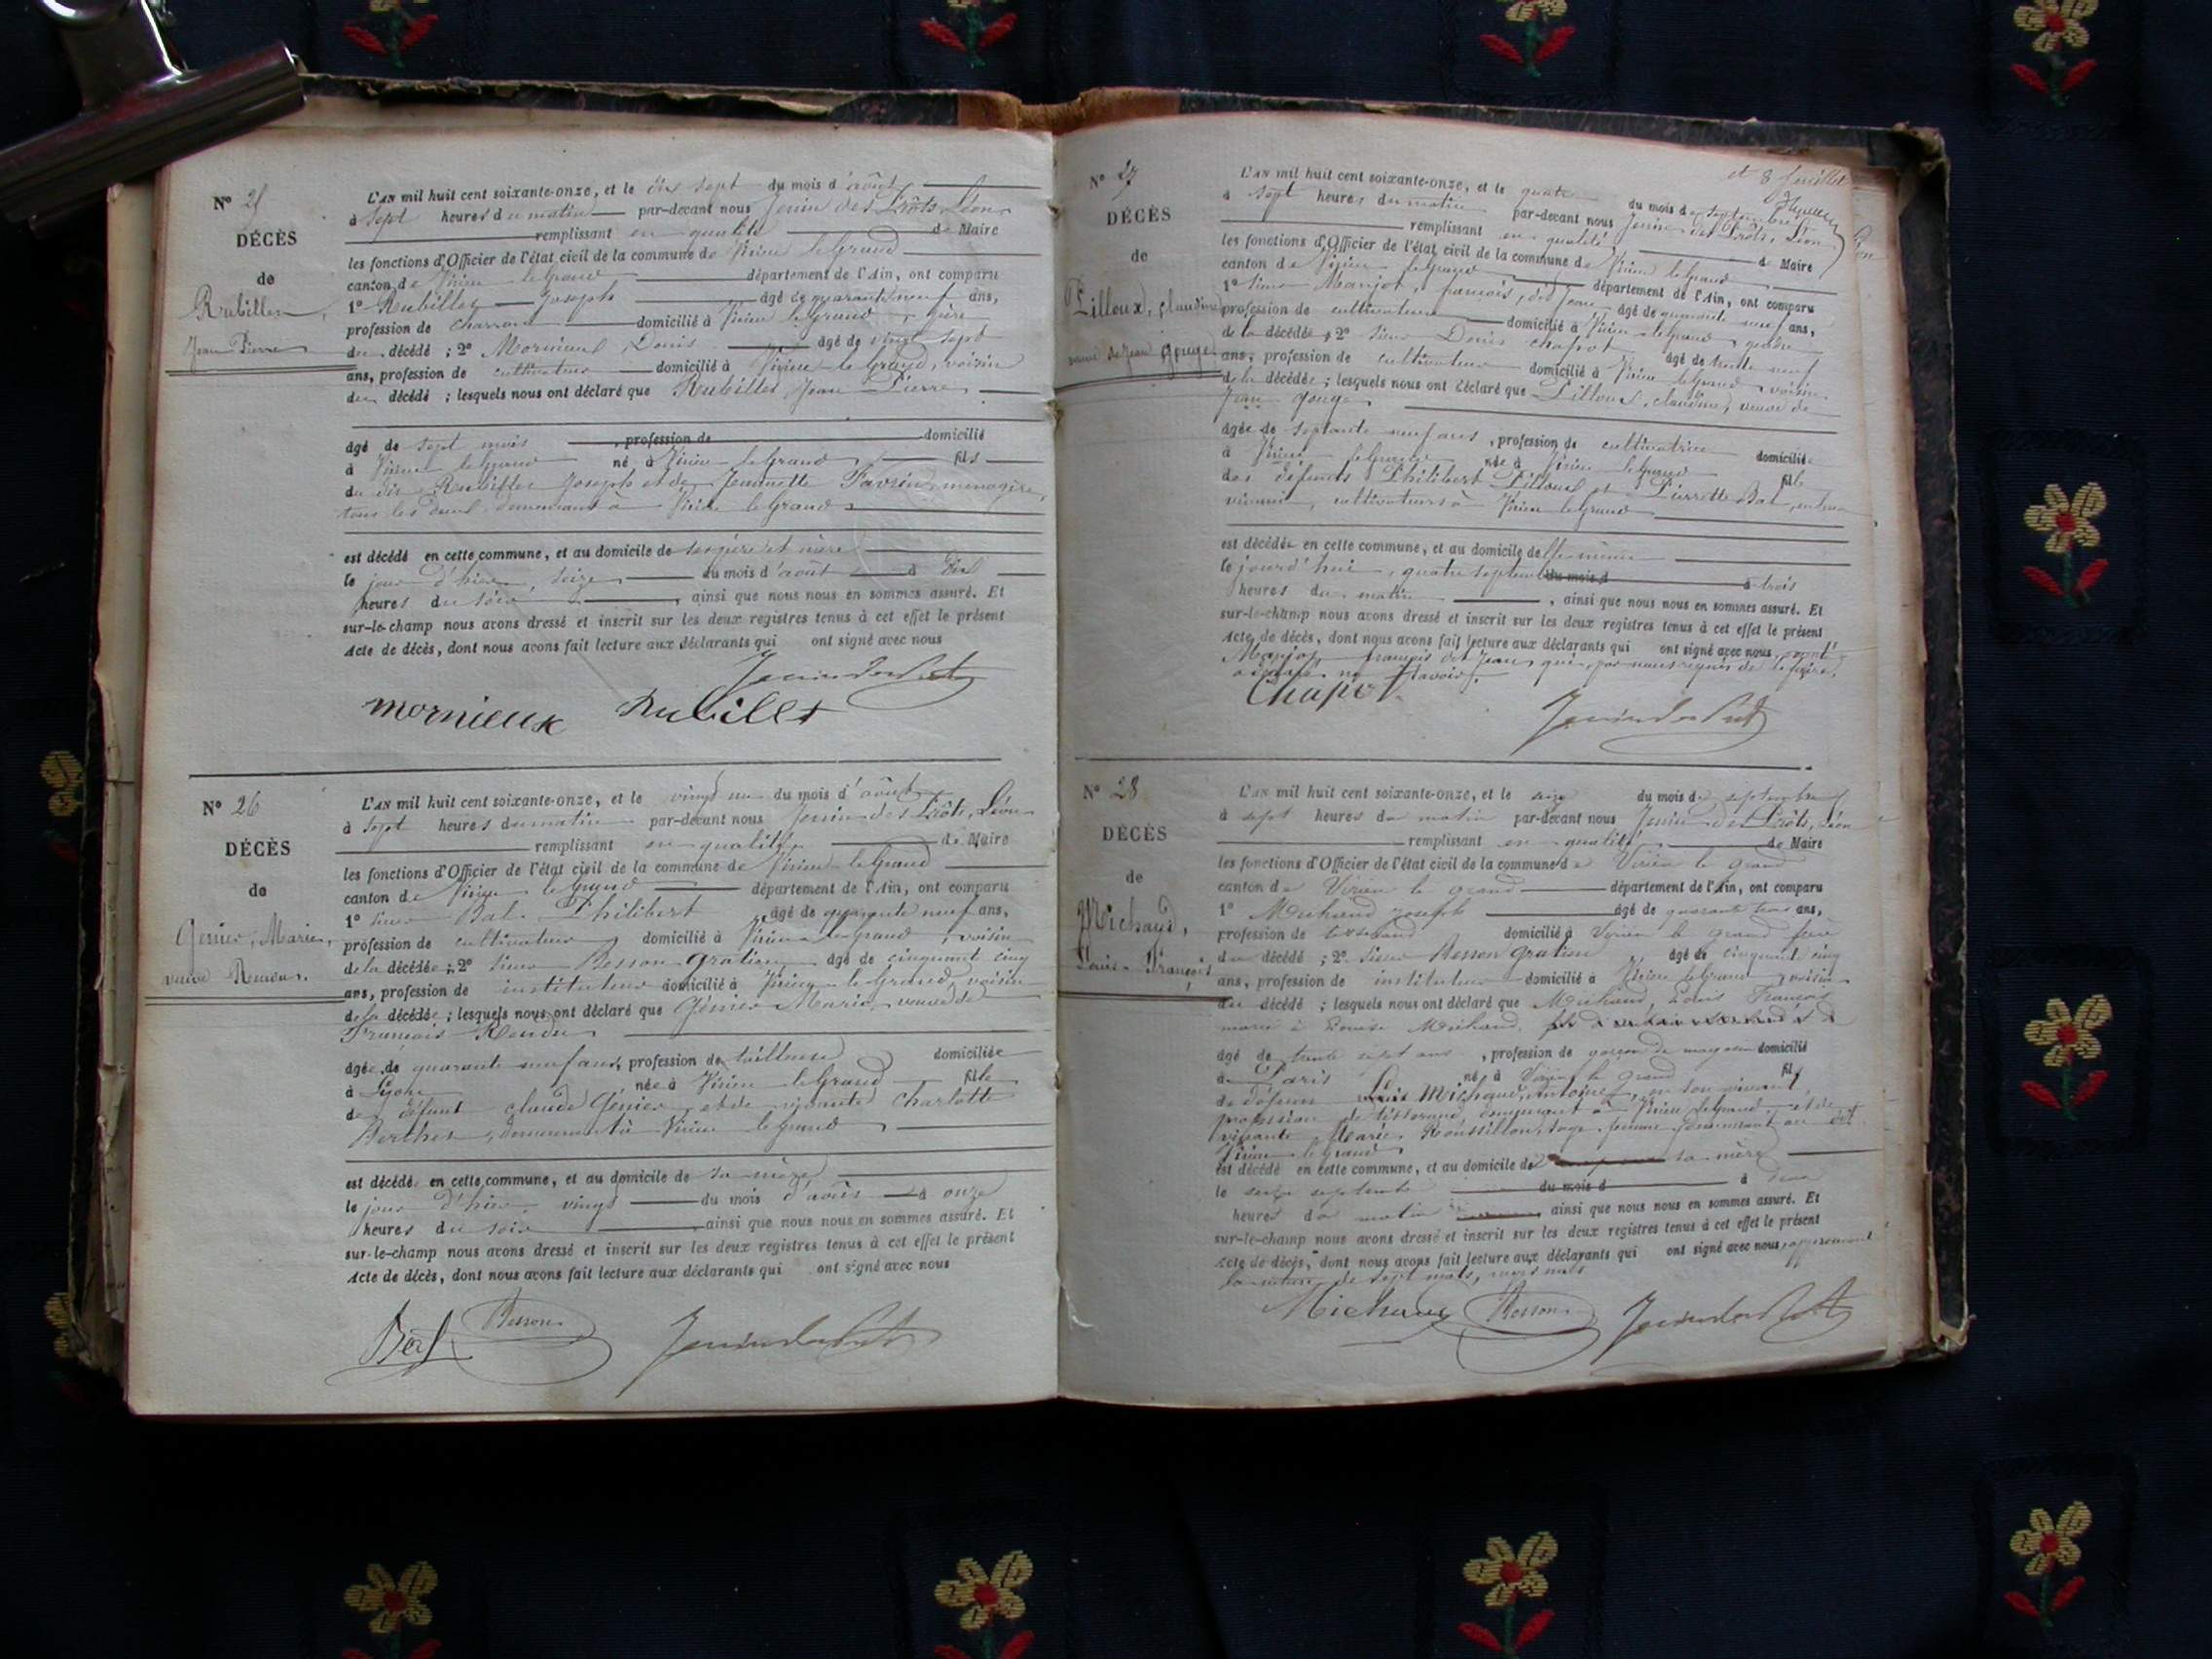 N° 25
DÉCÈS
de
Rubillet
Jean Pierre
L'AN mil huit cent soixante-onze, et le dix sept du mois d'août
à sept heures du matin par-devant nous Jenin des Prôts, Léon
remplissant en qualité de Maire
les fonctions d'Officier de l'état civil de la commune de Virieu le Grand
canton de Virieu le Grand département de l'Ain, ont comparu
1° Rubillet Joseph âgé de quarante neuf ans,
profession de charron domicilié à Virieu le Grand, père
du décédé ; 2° Mornieux Denis âgé de vingt sept
ans, profession de cultivateur domicilié à Virieu le Grand, voisin
du décédé ; lesquels nous ont déclaré que Rubillet Jean Pierre
âgé de sept mois, profession de domicilié
à Virieu le grand né à Virieu le Grand fils
du dit Rubillet Joseph et de Jeannette Favrin, ménagère,
tous les deux demeurant à Virieu le Grand
est décédé en cette commune, et au domicile de ses père et mère
le jour d'hier, seize du mois d'août à dix
heures du soir, ainsi que nous nous en sommes assuré. Et
sur-le-champ nous avons dressé et inscrit sur les deux registres tenus à cet effet le présent
Acte de décès, dont nous avons fait lecture aux déclarants qui ont signé avec nous
Jenin des Prôts
mornieux Rubillet
N° 26
DÉCÈS
de
Génier, Marie,
veuve Rendu.
L'AN mil huit cent soixante-onze, et le vingt un du mois d'août
à sept heures du matin par-devant nous Jenin des Prôts, Léon
remplissant en qualité de Maire
les fonctions d'Officier de l'état civil de la commune de Virieu le Grand
canton de Virieu le Grand département de l'Ain, ont comparu
1° sieur Bal Philibert âgé de quarante neuf ans,
profession de cultivateur domicilié à Virieu le grand, voisin
de la décédée ; 2° sieur Besson Gratien âgé de cinquante cinq
ans, profession de instituteur domicilié à Virieu le Grand, voisin
de la décédée ; lesquels nous ont déclaré que Génier Marie, veuve de
François Rendu
âgée de quarante neuf ans, profession de tailleuse domiciliée
à Lyon née à Virieu le Grand fille
de défunt claude Génier et de vivante Charlotte
Berthet, demeurant à Virieu le grand
est décédée en cette commune, et au domicile de sa mère
le jour d'hier, vingt du mois d'août à onze
heures du soir, ainsi que nous nous en sommes assuré. Et
sur-le-champ nous avons dressé et inscrit sur les deux registres tenus à cet effet le présent
Acte de décès, dont nous avons fait lecture aux déclarants qui ont signé avec nous
Bal Besson Jenin des Prôts
et 8 feuillet
N° 27
DÉCÈS
de
Pilloux, claudine
veuve de Jean Gouge
L'AN mil huit cent soixante-onze, et le quatre du mois de septembre
à sept heures du matin par-devant nous Jenin des Prôts, Léon
remplissant en qualité de Maire
les fonctions d'Officier de l'état civil de la commune de Virieu le Grand
canton de Virieu le Grand département de l'Ain, ont comparu
1° sieur Manjot, françois, dit Jean, âgé de quarante neuf ans,
profession de cultivateur domicilié à Virieu le grand, gendre
de la décédée ; 2° sieur Denis chapot âgé de trente neuf
ans, profession de cultivateur domicilié à Virieu le Grand, voisin
de la décédée ; lesquels nous ont déclaré que Pilloux, claudine, veuve de
Jean Gouge
âgée de septante neuf ans, profession de cultivatrice domiciliée
à Virieu le Grand née à Virieu le Grand fille
des défunts Philibert Pilloux et Pierrette Bal, en leur
vivant, cultivateurs à Virieu le Grand
est décédée en cette commune, et au domicile d'elle même
le jourd'hui, quatre septembre du mois d à trois
heures du matin, ainsi que nous nous en sommes assuré. Et
sur-le-champ nous avons dressé et inscrit sur les deux registres tenus à cet effet le présent
Acte de décès, dont nous avons fait lecture aux déclarants qui ont signé avec nous,
Manjot françois dit Jean, qui, par nous requis de le faire,
a déclaré ne savoir.
Chapot Jenin des Prôts
N° 28
DÉCÈS
de
Michaud,
Louis François
L'AN mil huit cent soixante-onze, et le seize du mois de septembre
à sept heures du matin par-devant nous Jenin des Prôts, Léon
remplissant en qualité de Maire
les fonctions d'Officier de l'état civil de la commune de Virieu le grand
canton de Virieu le grand département de l'Ain, ont comparu
1° Michaud joseph âgé de quarante trois ans,
profession de tisserand domicilié à Virieu le grand frère
du décédé ; 2° sieur Besson Gratien âgé de cinquante cinq
ans, profession de instituteur domicilié à Virieu le Grand, voisin
du décédé ; lesquels nous ont déclaré que Michaud, Louis François
marié à Louise Michaud,
âgé de trente sept ans, profession de garçon de magasin domicilié
à Paris né à Virieu le grand fils
de défunt Michaud, Antoine, en son vivant,
profession de tisserand, demeurant à Virieu le Grand et de
vivante Marie Roussillon, sage femme demeurant au dit
Virieu le Grand
est décédé en cette commune, et au domicile de sa mère
le seize septembre du mois d à deux
heures du matin, ainsi que nous nous en sommes assuré. Et
sur-le-champ nous avons dressé et inscrit sur les deux registres tenus à cet effet le présent
Acte de décès, dont nous avons fait lecture aux déclarants qui ont signé avec nous, approuvant
la rature de sept mots, rayés nuls
Michaud Besson Jenin des Prôts